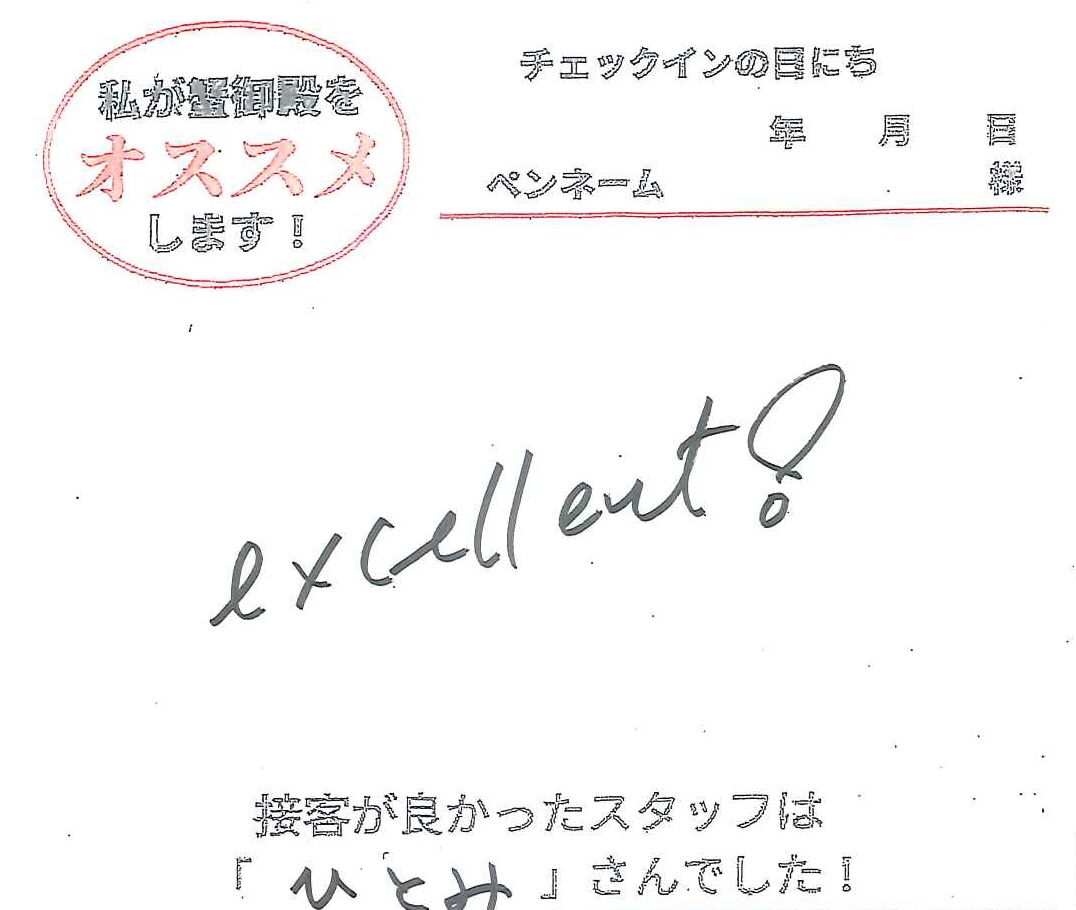 私が蟹御殿を
オススメ
します！
チェックインの日にち
年 月 日
ペンネーム 様
excellent!
接客が良かったスタッフは
「ひとみ」さんでした！